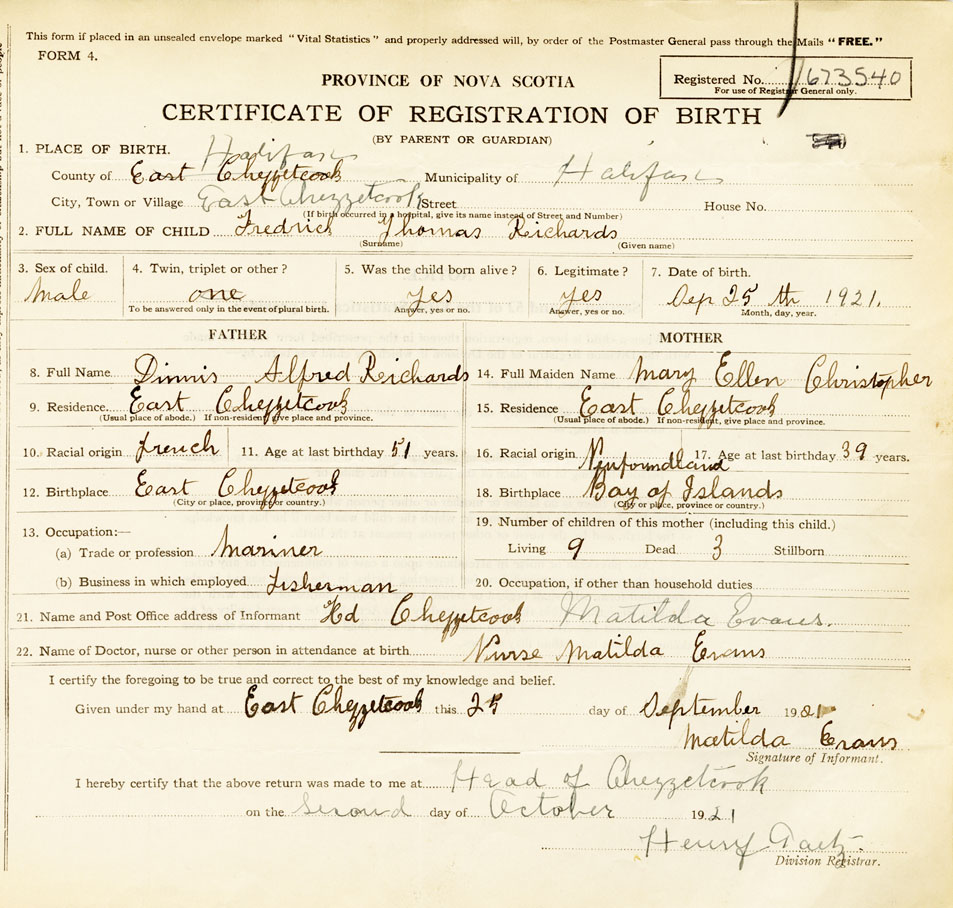 This form if placed in an unsealed envelope marked "Vital Statistics" and properly addressed will, by order of the Postmaster General pass through the Mails "FREE."
FORM 4.
Registered No. 1673540
For use of Registrar General only.
PROVINCE OF NOVA SCOTIA
CERTIFICATE OF REGISTRATION OF BIRTH
(BY PARENT OR GUARDIAN)
1. PLACE OF BIRTH. Halifax
County of East Chezzetcook Municipality of Halifax
City, Town or Village East Chezzetcook Street House No.
(If birth occurred in a hospital, give its name instead of Street and Number)
2. FULL NAME OF CHILD Fredrick Thomas Reichards
(Surname) (Given name)
3. Sex of child. 4. Twin, triplet or other? 5. Was the child born alive? 6. Legitimate? 7. Date of birth.
Male one yes yes Sep 25 th 1921.
To be answered only in the event of plural birth. Answer, yes or no. Answer, yes or no. Month, day, year.
FATHER MOTHER
8. Full Name Dinnis Alfred Reichards 14. Full Maiden Name Mary Ellen Christopher
9. Residence. East Chezzetcook 15. Residence East Chezzetcook
(Usual place of abode.) If non-resident, give place and province. (Usual place of abode.) If non-resident, give place and province.
10. Racial origin french 11. Age at last birthday 51 years. 16. Racial origin Newfoundland 17. Age at last birthday 39 years.
12. Birthplace East Chezzetcook 18. Birthplace Bay of Islands
(City or place, province or country.) (City or place, province or country.)
13. Occupation:— 19. Number of children of this mother (including this child.)
(a) Trade or profession Mariner Living 9 Dead 3 Stillborn
(b) Business in which employed fisherman 20. Occupation, if other than household duties
21. Name and Post Office address of Informant Hd Chezzetcook Matilda Evans.
22. Name of Doctor, nurse or other person in attendance at birth Nurse Matilda Evans
I certify the foregoing to be true and correct to the best of my knowledge and belief.
Given under my hand at East Chezzetcook this 25 day of September 1921
Matilda Evans
Signature of Informant.
I hereby certify that the above return was made to me at Head of Chezzetcook
on the second day of October 1921
Henry
Division Registrar.